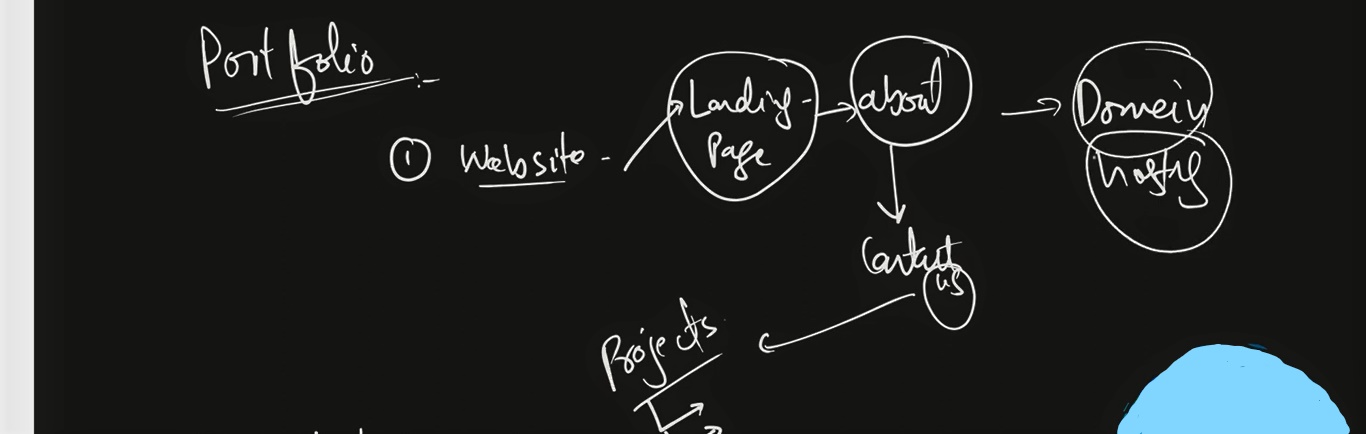 Portfolio :-
① Website -
Landing -
Page
about
Domein
hosting
Contact
us
Projects